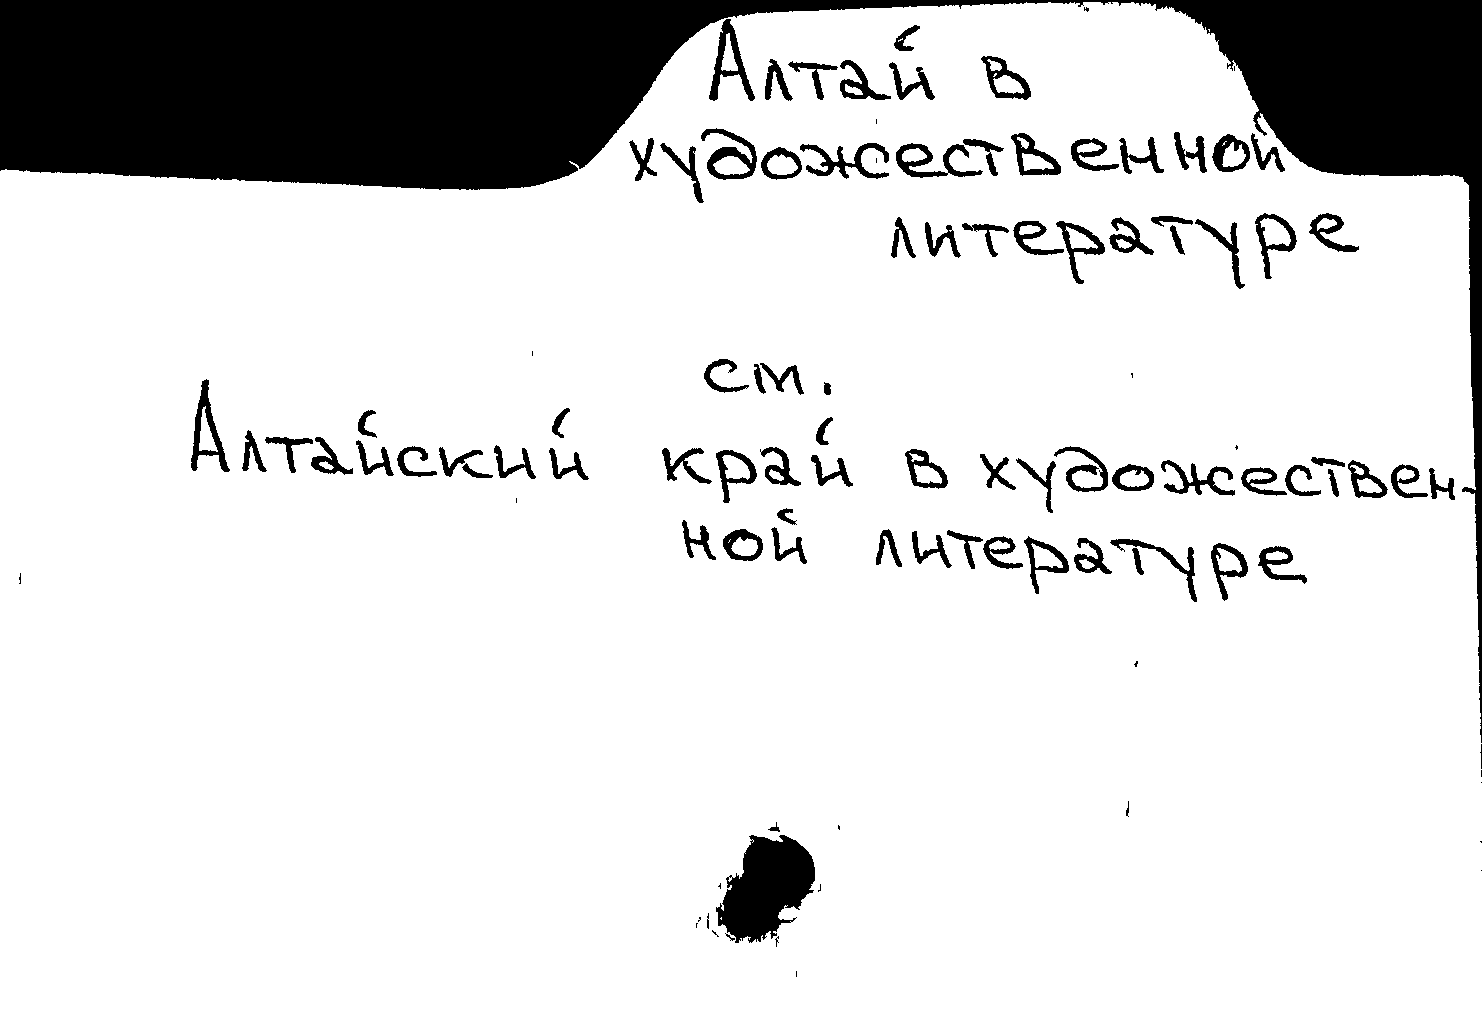 Алтай в
художественной
литературе
см.
Алтайский край в художествен-
ной литературе